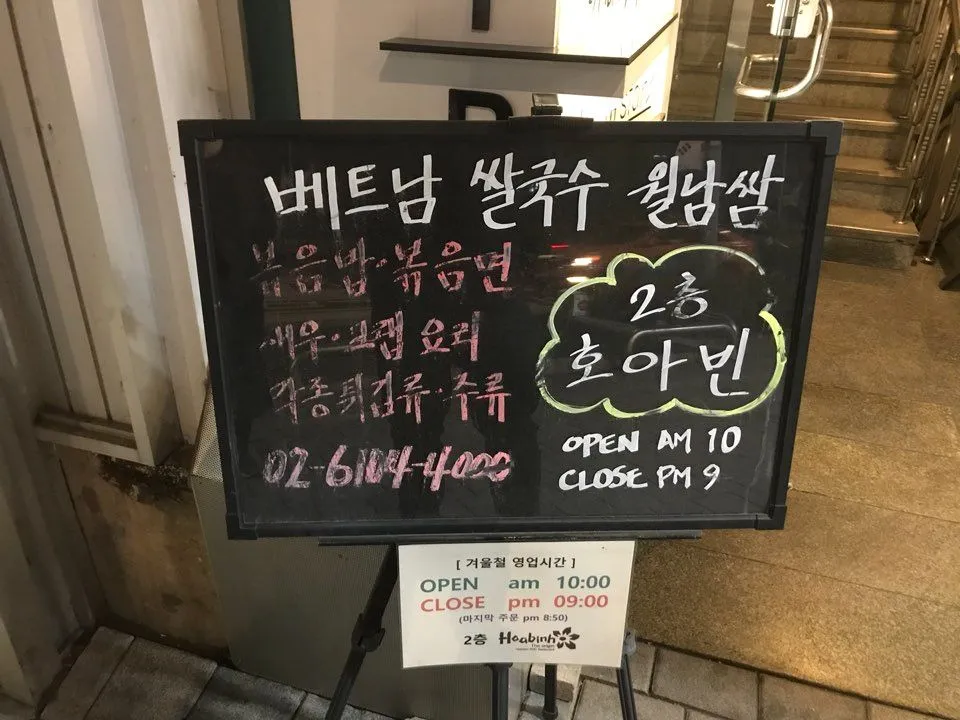 베트남 쌀국수 월남쌈
볶음밥·볶음면
새우·크랩 요리
각종튀김류·주류
02-6104-4000
2층
호아빈
OPEN AM 10
CLOSE PM 9
[ 겨울철 영업시간 ]
OPEN am 10:00
CLOSE pm 09:00
(마지막 주문 pm 8:50)
2층 Hoabinh
The origin